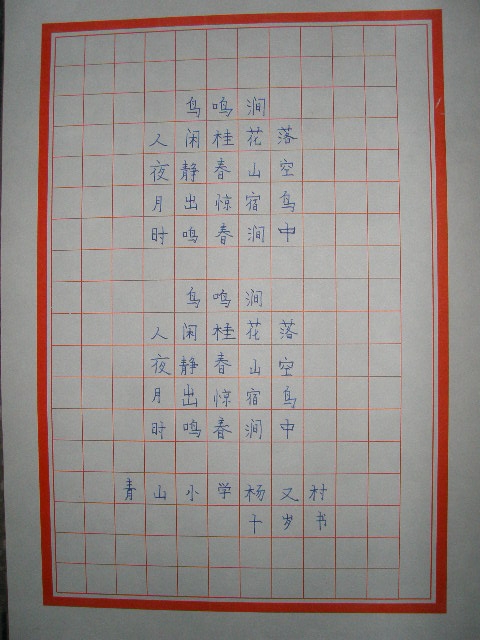 鸟鸣涧
人闲桂花落
夜静春山空
月出惊宿鸟
时鸣春涧中
鸟鸣涧
人闲桂花落
夜静春山空
月出惊宿鸟
时鸣春涧中
青山小学杨又村
十岁书